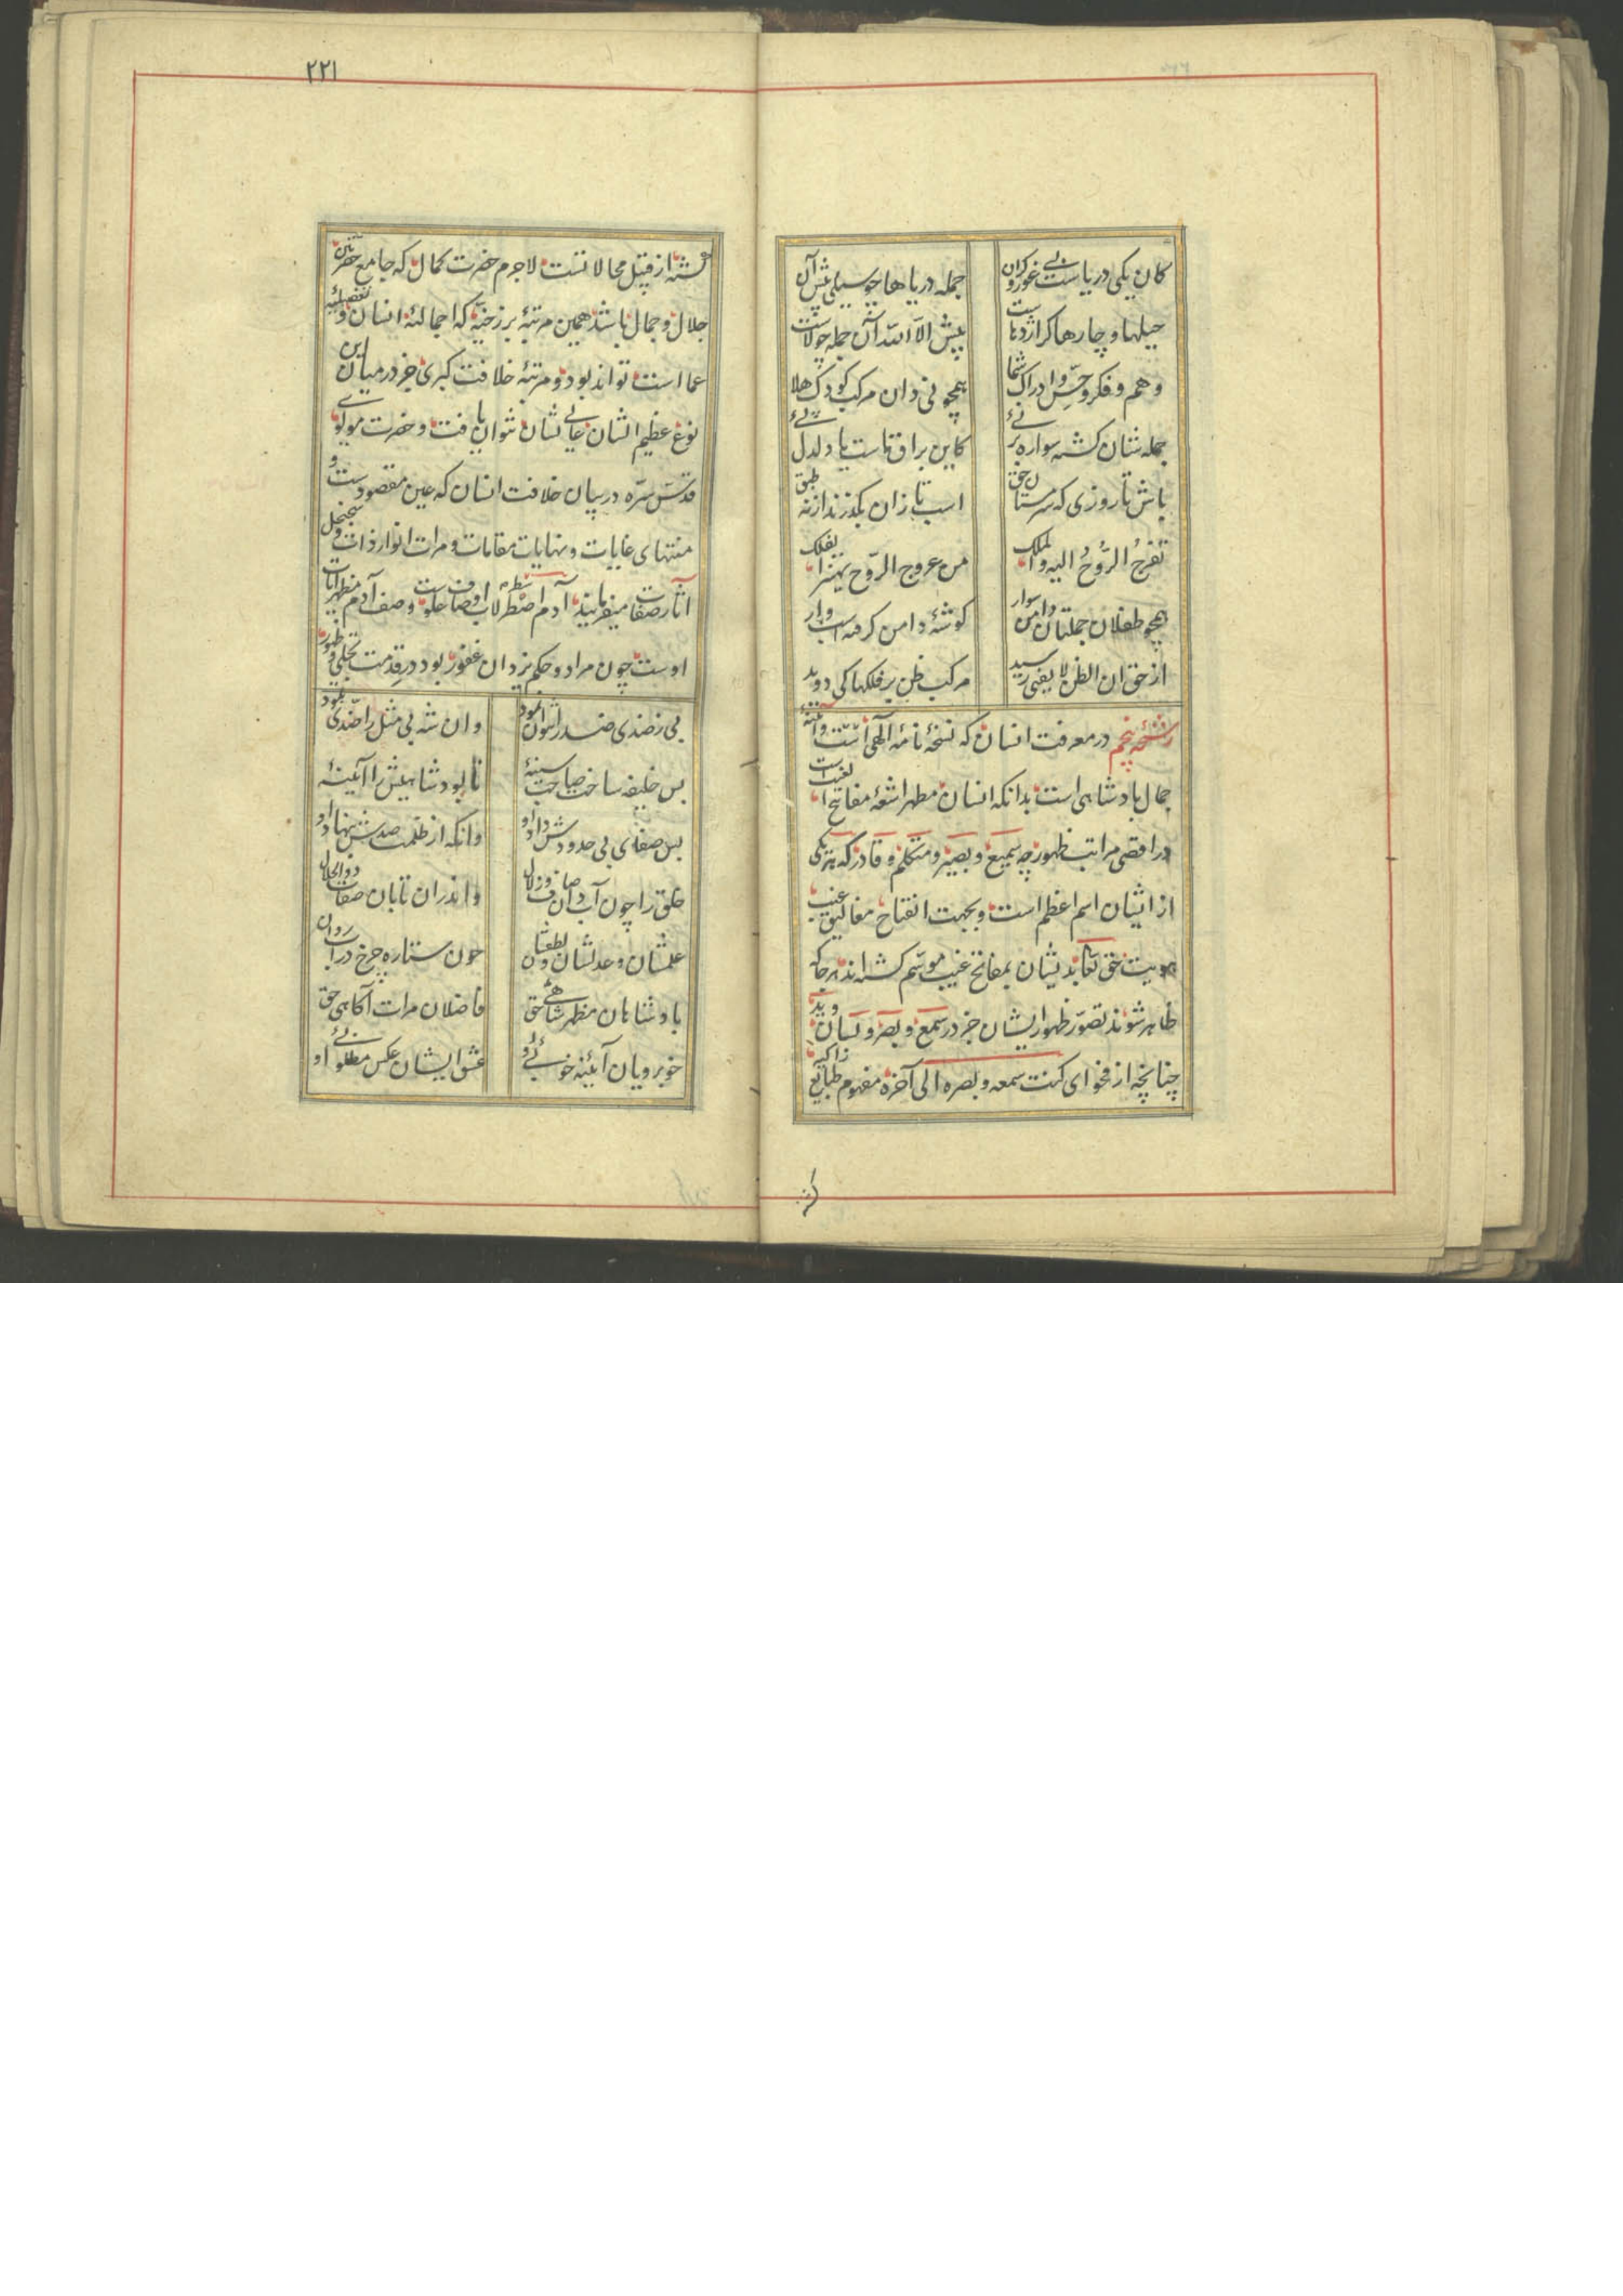 کان یکی دریاست بی غور و کران
جمله دریاها چو سیلی پیش آن
حیلها و چارها کر اژدهاست
پیش الا الله آن جمله چو لاست
وهم و فکر و حس و ادراک شما
همچو نی دان مرکب کودک هلا
جمله شان کشته سواره بر نئی
کاین براق ماست یا دلدل پئی
باش تا روزی که سرمستان حق
اسب تازان بگذرند از نه طبق
تعرج الروح الیه والملک
من عروج الروح یهتز الفلک
همچو طفلان جملتان دامن سوار
کوشهٔ دامن کرفته اسب وار
از حق ان الظن لا یغنی رسید
مرکب ظن بر فلکها کی دوید
رشحهٔ پنجم در معرفت انسان که نسخهٔ نامهٔ الهی است و آئینهٔ
جمال پادشاهی است بدانکه انسان مظهر اشعهٔ مفاتیح الغیب است
در اقصی مراتب ظهور چه سمیع و بصیر و متکلم و قادر که هر یکی
از ایشان اسم اعظم است و بجهت انفتاح مغالیق غیب
هویت حق تعالی بدیشان بمفاتح غیب موسم کشته اند هر جا که
ظاهر شوند تصور ظهور ایشان جز در سمع و بصر و لسان و ید
چنانچه از فحوای کنت سمعه و بصره الی آخره مفهوم طبایع زاکیه
کشته
۲۲۱
کشته از قبیل محالاتست لاجرم حضرت کمال که جامع حضرتین
جلال و جمال باشد همین مرتبهٔ برزخیه که اجمالیهٔ انسان و تفصیلیهٔ
عما است تواند بود و مرتبهٔ خلافت کبری جز در میان این
نوع عظیم الشان عالی نشان نتوان یافت و حضرت مولوی
قدس سره در بیان خلافت انسان که عین مقصودست و
منتهای غایات و نهایات مقامات و مرات انوار ذات و سجنجل
آثار صفات میفرمایند آدم اصطرلاب اوصاف علوست وصف آدم مظهر آیات
اوست چون مراد و حکم یزدان غفور بود در قدمت تجلی و ظهور
بی ز ضدی ضد را نتوان نمود
وان شه بی مثل را ضدی نبود
پس خلیفه ساخت صاحب سینهٔ
تا بود شاهیش را آئینهٔ
پس صفای بی حدودش داد او
وانکه از ظلمت ضدش بنهاد او
خلق را چون آب دان صاف و زلال
واندران تابان صفات ذوالجلال
علمشان و عدلشان و لطفشان
چون ستاره چرخ در آب روان
پادشاهان مظهر شاهی حق
فاضلان مرات آکاهی حق
خوبرویان آئینه خوبی او
عشق ایشان عکس مطلوبی او